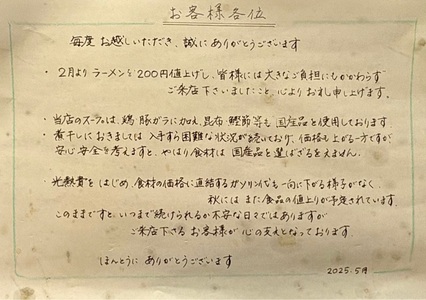 お客様各位
毎度 お越しいただき、誠に ありがとうございます
・ 2月より ラーメンを 200円値上げし、皆様には 大きなご負担にもかかわらず
ご来店下さいましたこと、心より お礼申し上げます。
・ 当店のスープは、鶏、豚ガラに加え、昆布、鰹節等も 国産品を使用しております
・ 煮干しにおきましては 入手すら困難な状況が続いており、価格も上がる一方ですが
安心安全を考えますと、やはり食材は 国産品を選ばざるをえません。
・ 光熱費をはじめ、食材の価格に直結するガソリン代も一向に下がる様子がなく、
秋には また食品の値上りが予定されています。
このままですと、いつまで続けられるか不安な日々ではありますが
ご来店下さる お客様が 心の支えとなっております。
ほんとうに ありがとうございます
2025.5月